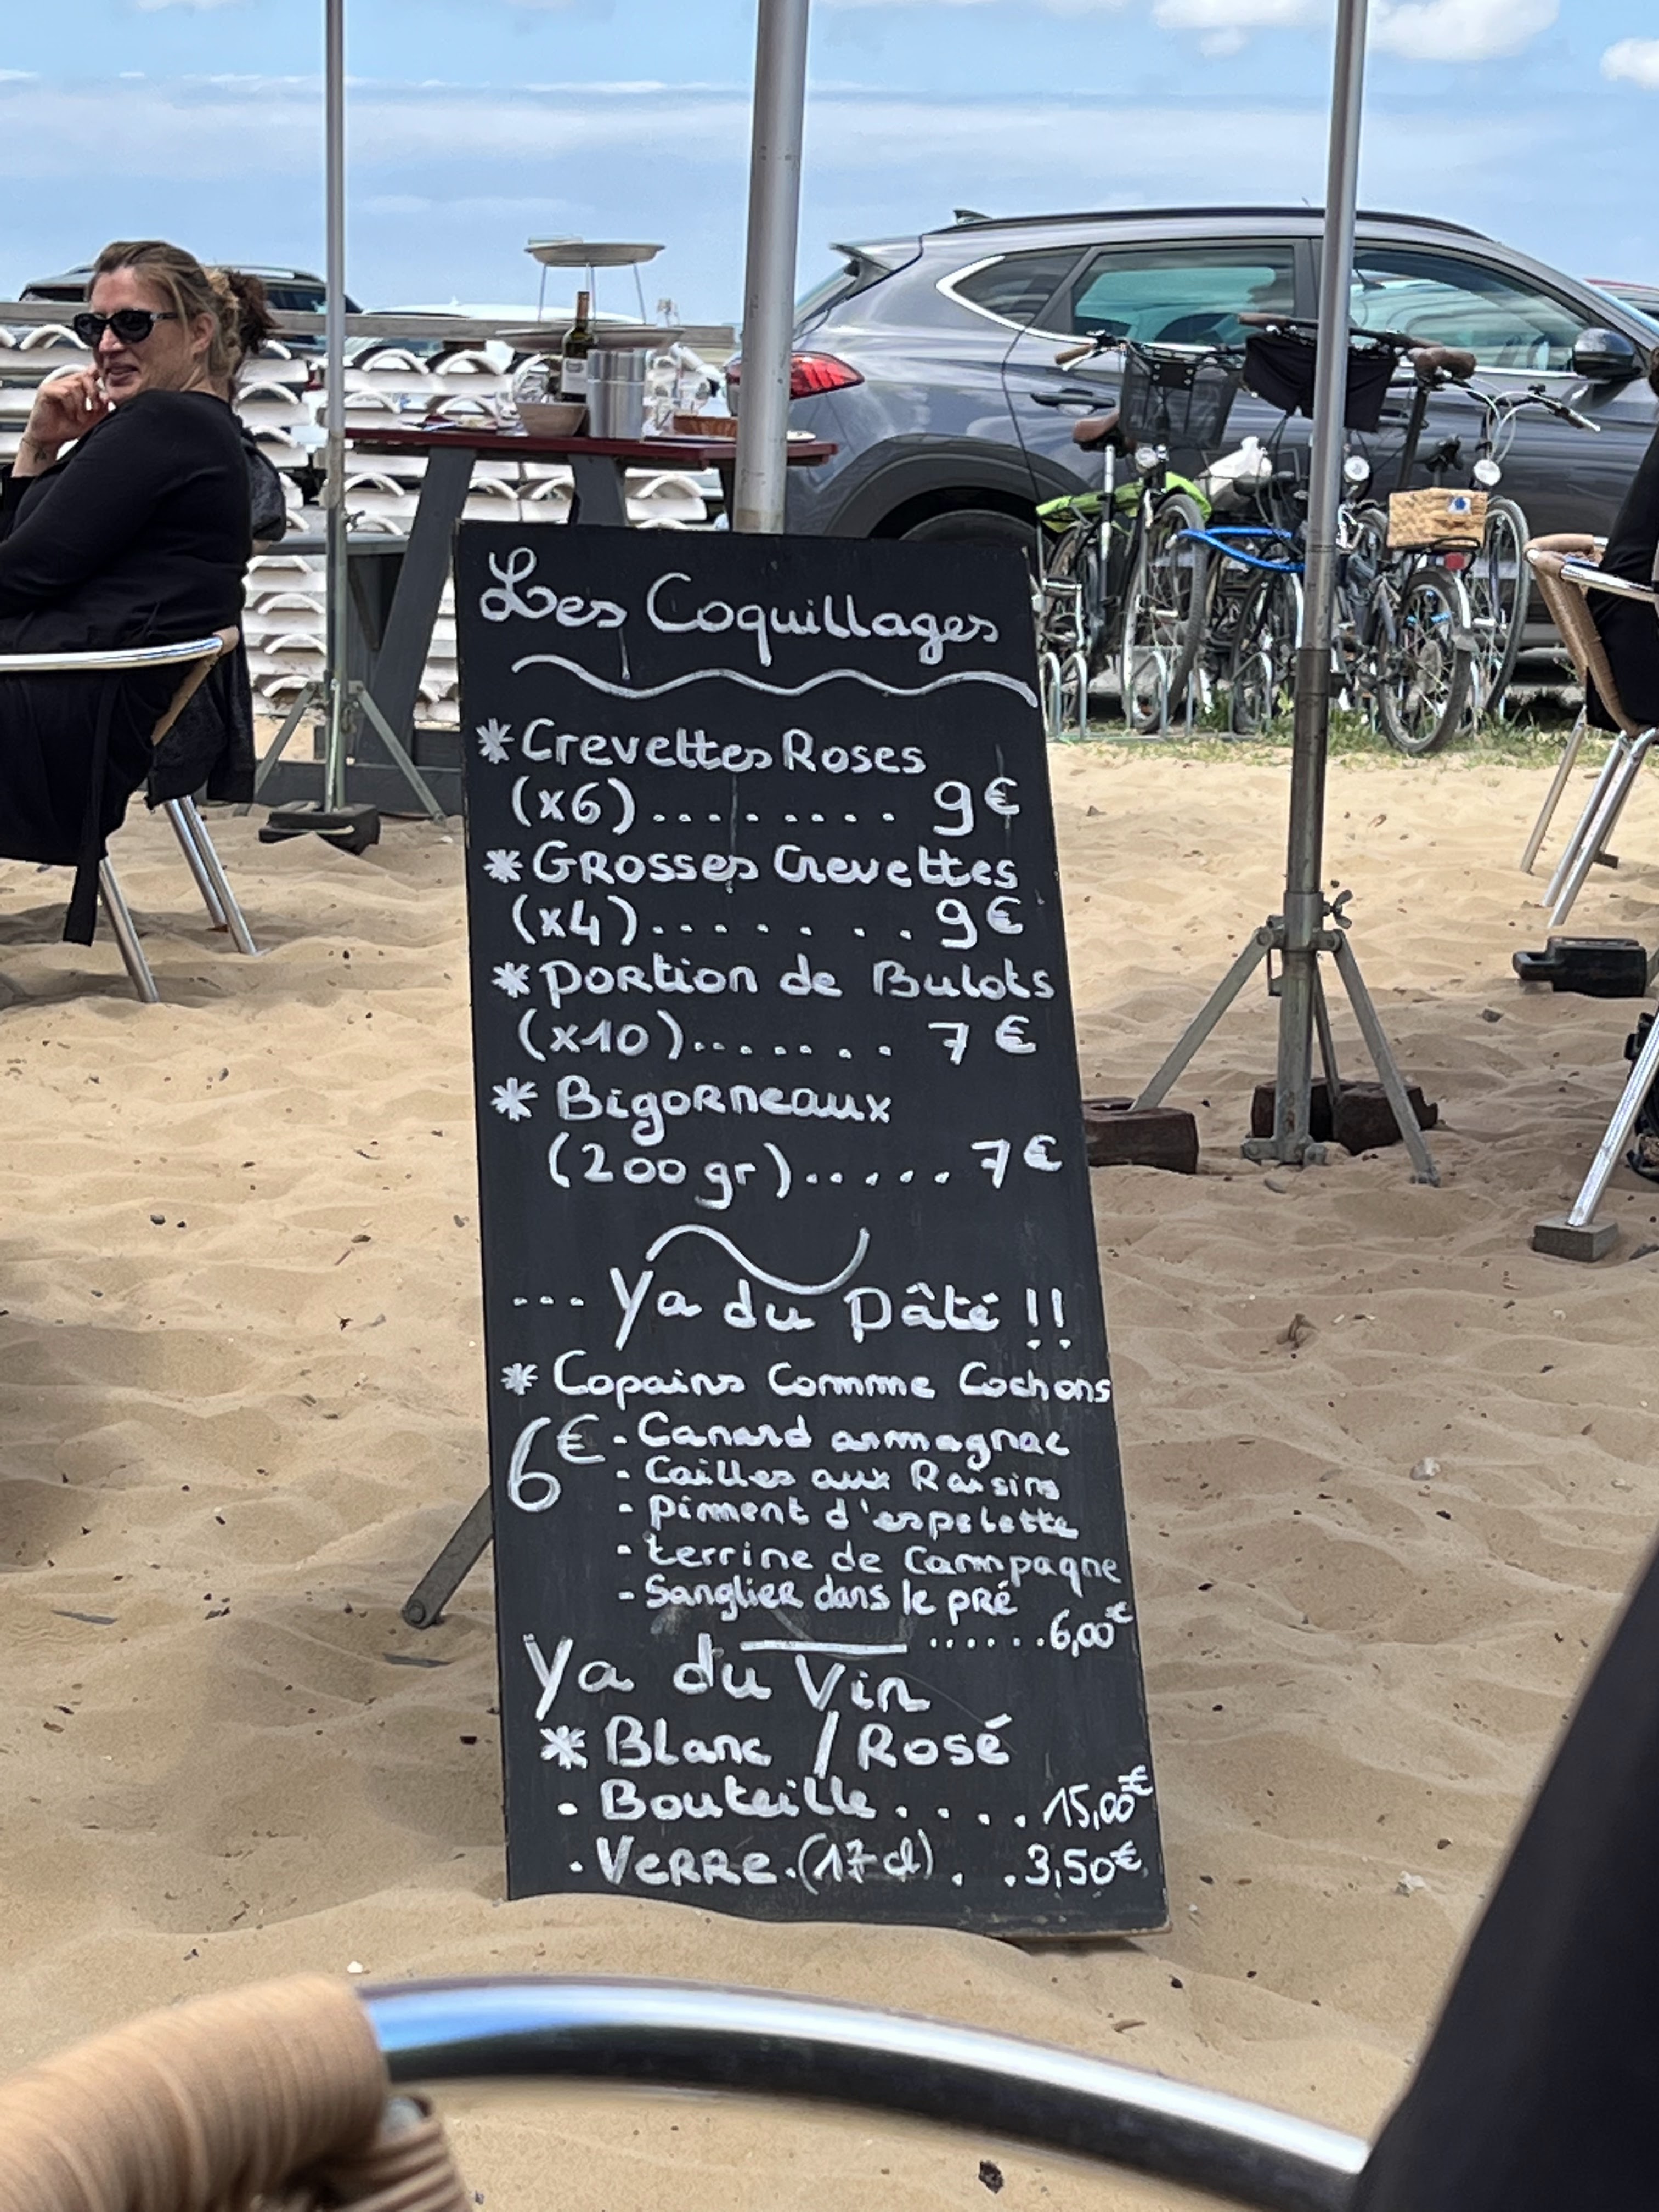 Les Coquillages
* Crevettes Roses
(x6)........ 9€
* GROSSES Crevettes
(x4)....... 9€
* PORtion de Bulots
(x10)....... 7€
* BigORneaux
(200 gr)..... 7€
--- Ya du Pâté !!
* Copains Comme Cochons
6€ - Canard armagnac
- Cailles aux Raisins
- Piment d'espelette
- terrine de Campagne
- Sanglier dans le pré
......6,00€
Ya du Vin
* Blanc / Rosé
- Bouteille.... 15,00€
- VeRRe.(17cl)..3,50€